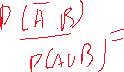 P(A̅.B)
P(A∪B) =